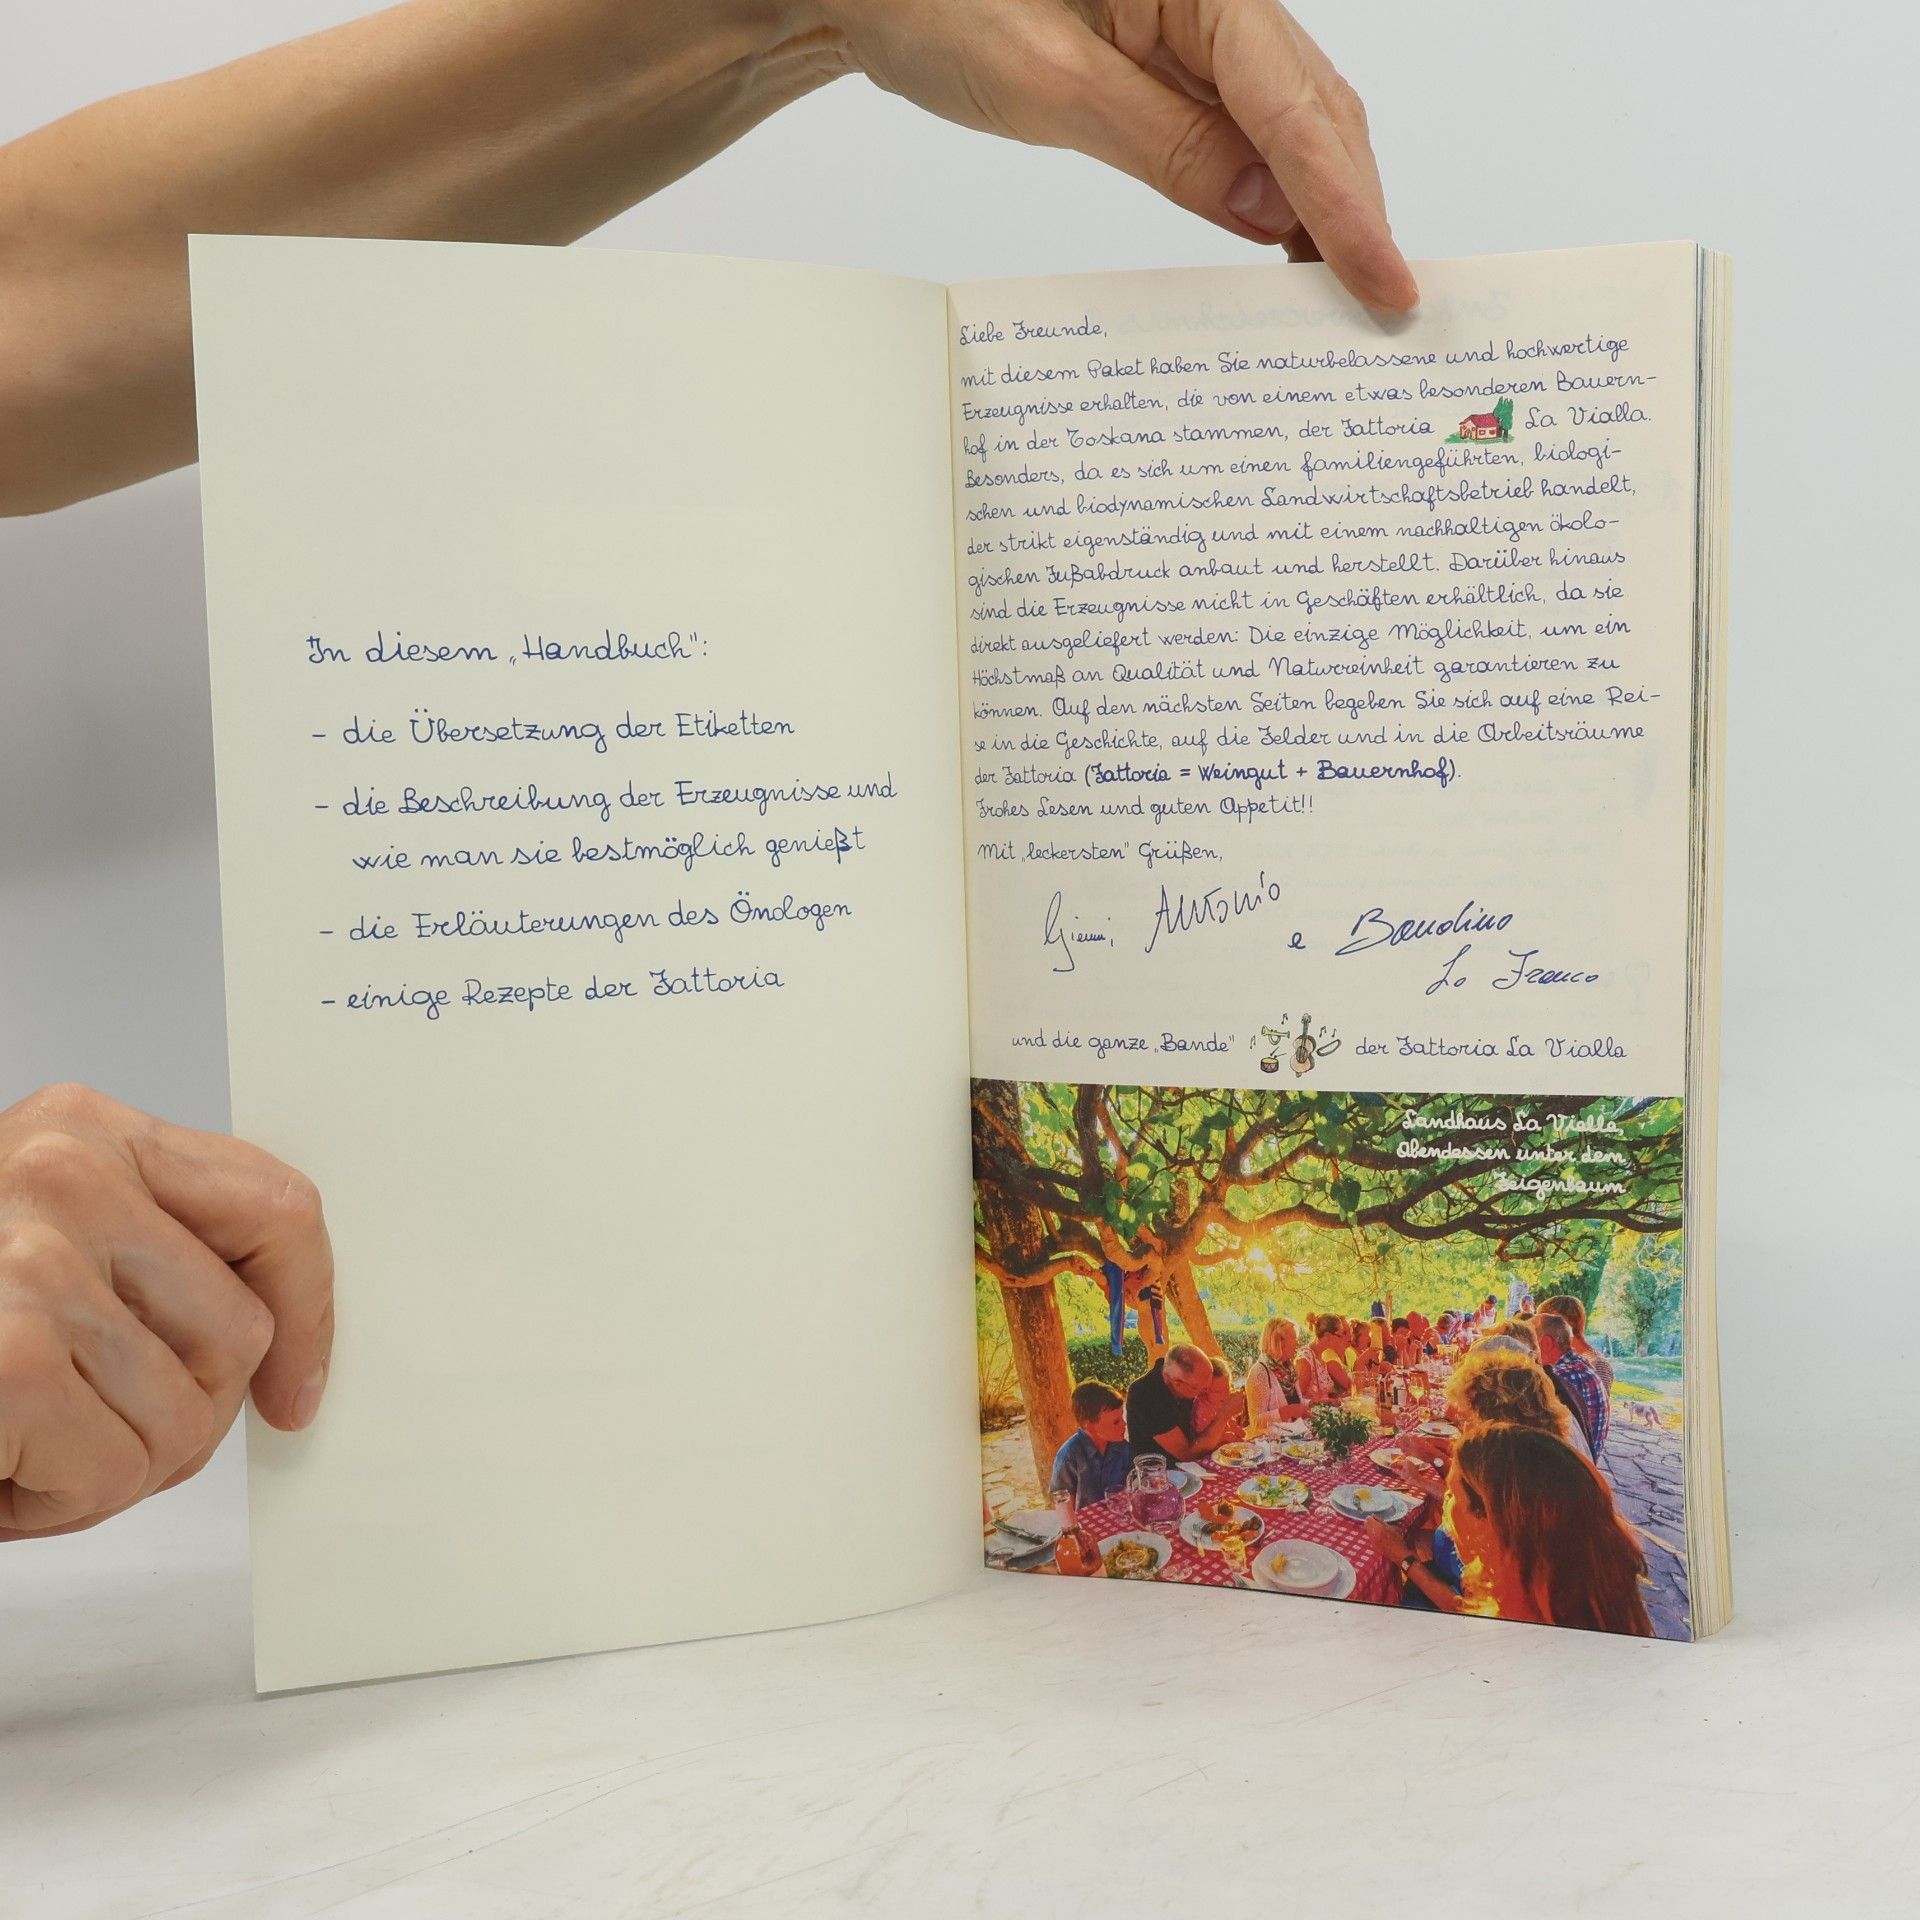 In diesem „Handbuch":
- die Übersetzung der Etiketten
- die Beschreibung der Erzeugnisse und
wie man sie bestmöglich genießt
- die Erläuterungen des Önologen
- einige Rezepte der Fattoria
Liebe Freunde,
mit diesem Paket haben Sie naturbelassene und hochwertige
Erzeugnisse erhalten, die von einem etwas besonderen Bauern-
hof in der Toskana stammen, der Fattoria La Vialla.
Besonders, da es sich um einen familiengeführten, biologi-
schen und biodynamischen Landwirtschaftsbetrieb handelt,
der strikt eigenständig und mit einem nachhaltigen ökolo-
gischen Fußabdruck anbaut und herstellt. Darüber hinaus
sind die Erzeugnisse nicht in Geschäften erhältlich, da sie
direkt ausgeliefert werden: Die einzige Möglichkeit, um ein
Höchstmaß an Qualität und Naturreinheit garantieren zu
können. Auf den nächsten Seiten begeben Sie sich auf eine Rei-
se in die Geschichte, auf die Felder und in die Arbeitsräume
der Fattoria (Fattoria = Weingut + Bauernhof).
Frohes Lesen und guten Appetit!!
Mit „leckersten" Grüßen,
Gianni, Antonio
e Bandino
Lo Franco
und die ganze „Bande" der Fattoria La Vialla
Landhaus La Vialla,
Abendessen unter dem
Feigenbaum